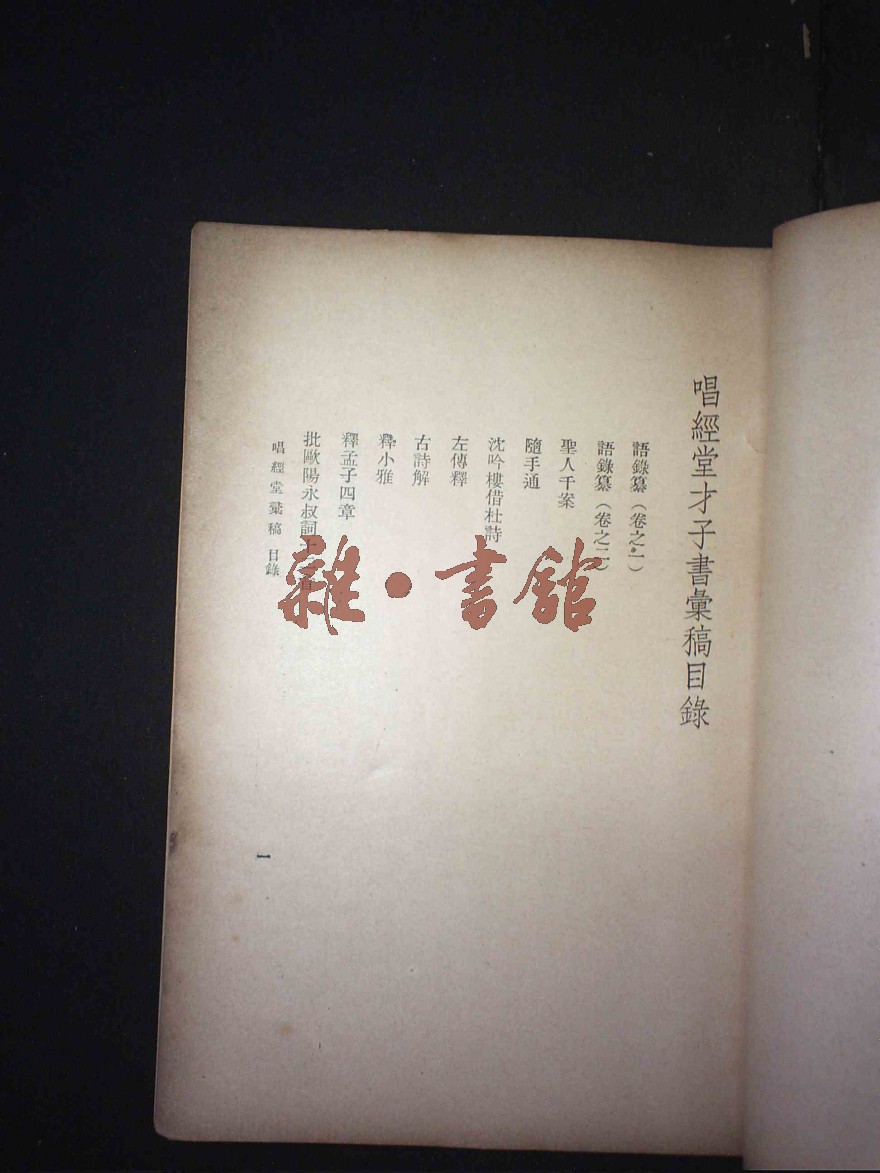 唱經堂才子書彙稿目錄
語錄纂（卷之一）
語錄纂（卷之二）
聖人千案
隨手通
沈吟樓借杜詩
左傳釋
古詩解
釋小雅
釋孟子四章
批歐陽永叔詞十
唱經堂彙稿 目錄
一
雜·書館